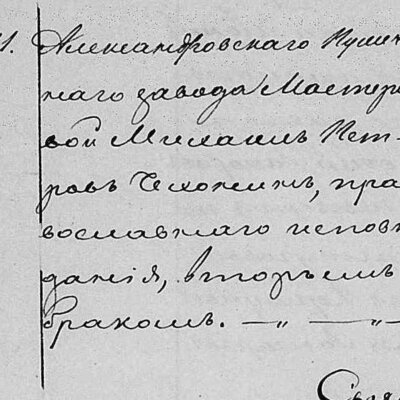 Александровскаго Пушеч
наго завода Мастеро
вой Михаилъ Пет-
ровъ Чехонинъ, пра
вославнаго исповѣ
данія, вторымъ
бракомъ. — „ — „ —